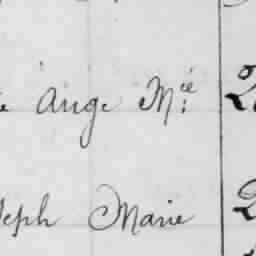 Ange M.ie
eph Marie